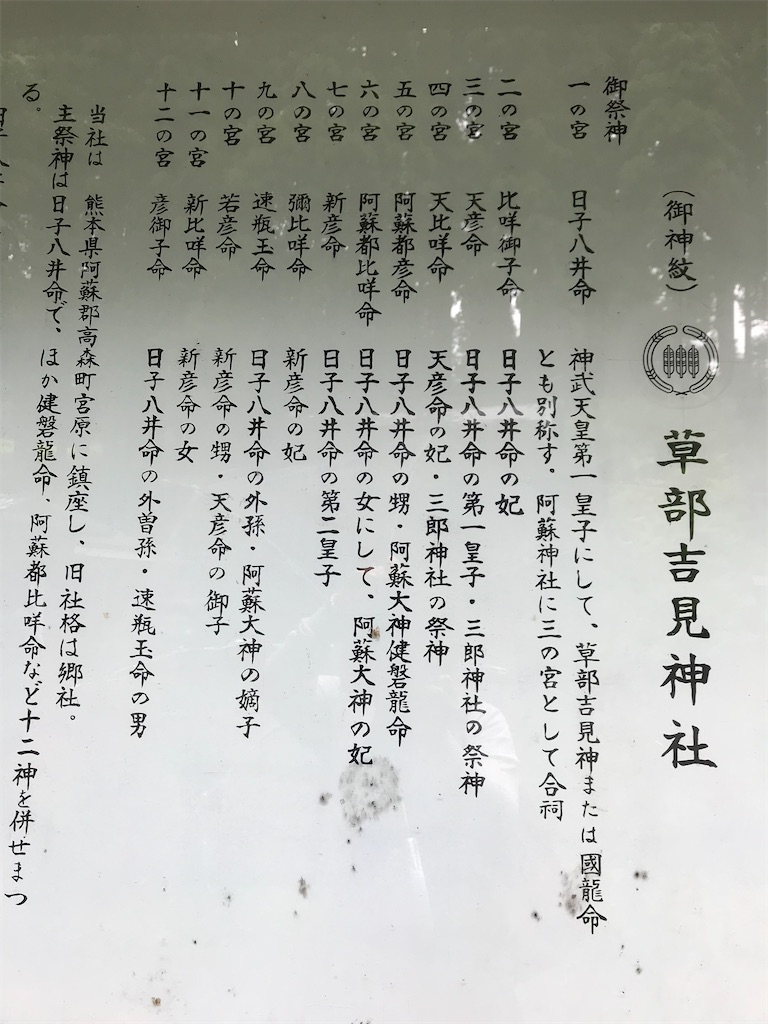 (御神紋) 草部吉見神社
御祭神
一の宮 日子八井命 神武天皇第一皇子にして、草部吉見神または國龍命
とも別称す。阿蘇神社に三の宮として合祠
二の宮 比咩御子命 日子八井命の妃
三の宮 天彦命 日子八井命の第一皇子・三郎神社の祭神
四の宮 天比咩命 天彦命の妃・三郎神社の祭神
五の宮 阿蘇都彦命 日子八井命の甥・阿蘇大神健磐龍命
六の宮 阿蘇都比咩命 日子八井命の女にして、阿蘇大神の妃
七の宮 新彦命 日子八井命の第二皇子
八の宮 彌比咩命 新彦命の妃
九の宮 速瓶玉命 日子八井命の外孫・阿蘇大神の嫡子
十の宮 若彦命 新彦命の甥・天彦命の御子
十一の宮 新比咩命 新彦命の女
十二の宮 彦御子命 日子八井命の外曽孫・速瓶玉命の男
当社は 熊本県阿蘇郡高森町宮原に鎮座し、旧社格は郷社。
主祭神は日子八井命で、ほか健磐龍命、阿蘇都比咩命など十二神を併せまつ
る。